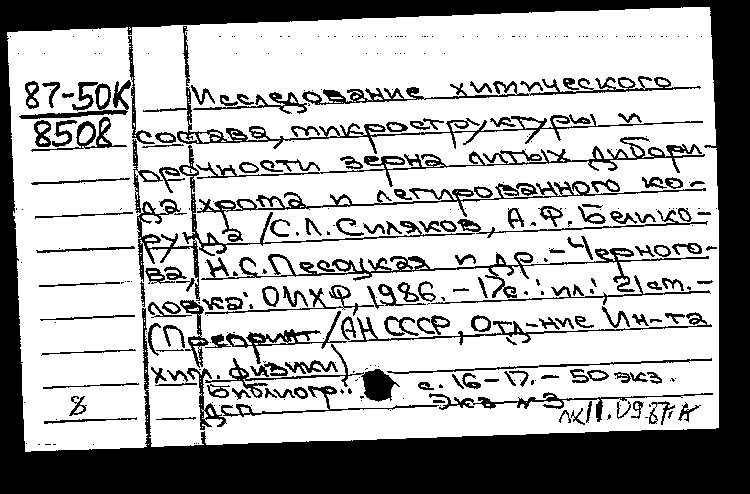 87-50К
8508
Исследование химического
состава, микроструктуры и
прочности зерна литых дибори-
да хрома и легированного ко-
рунда /С.Л.Силяков, А.Ф.Белико-
ва, Н.С.Песоцкая и др.-Черного-
ловка: ОИХФ, 1986. - 17с.: ил.; 21 см. -
(Препринт/АН СССР, Отд-ние Ин-та
хим. физики)
Библиогр.: с. 16-17. - 50 экз.
ДСП Экз №3
8